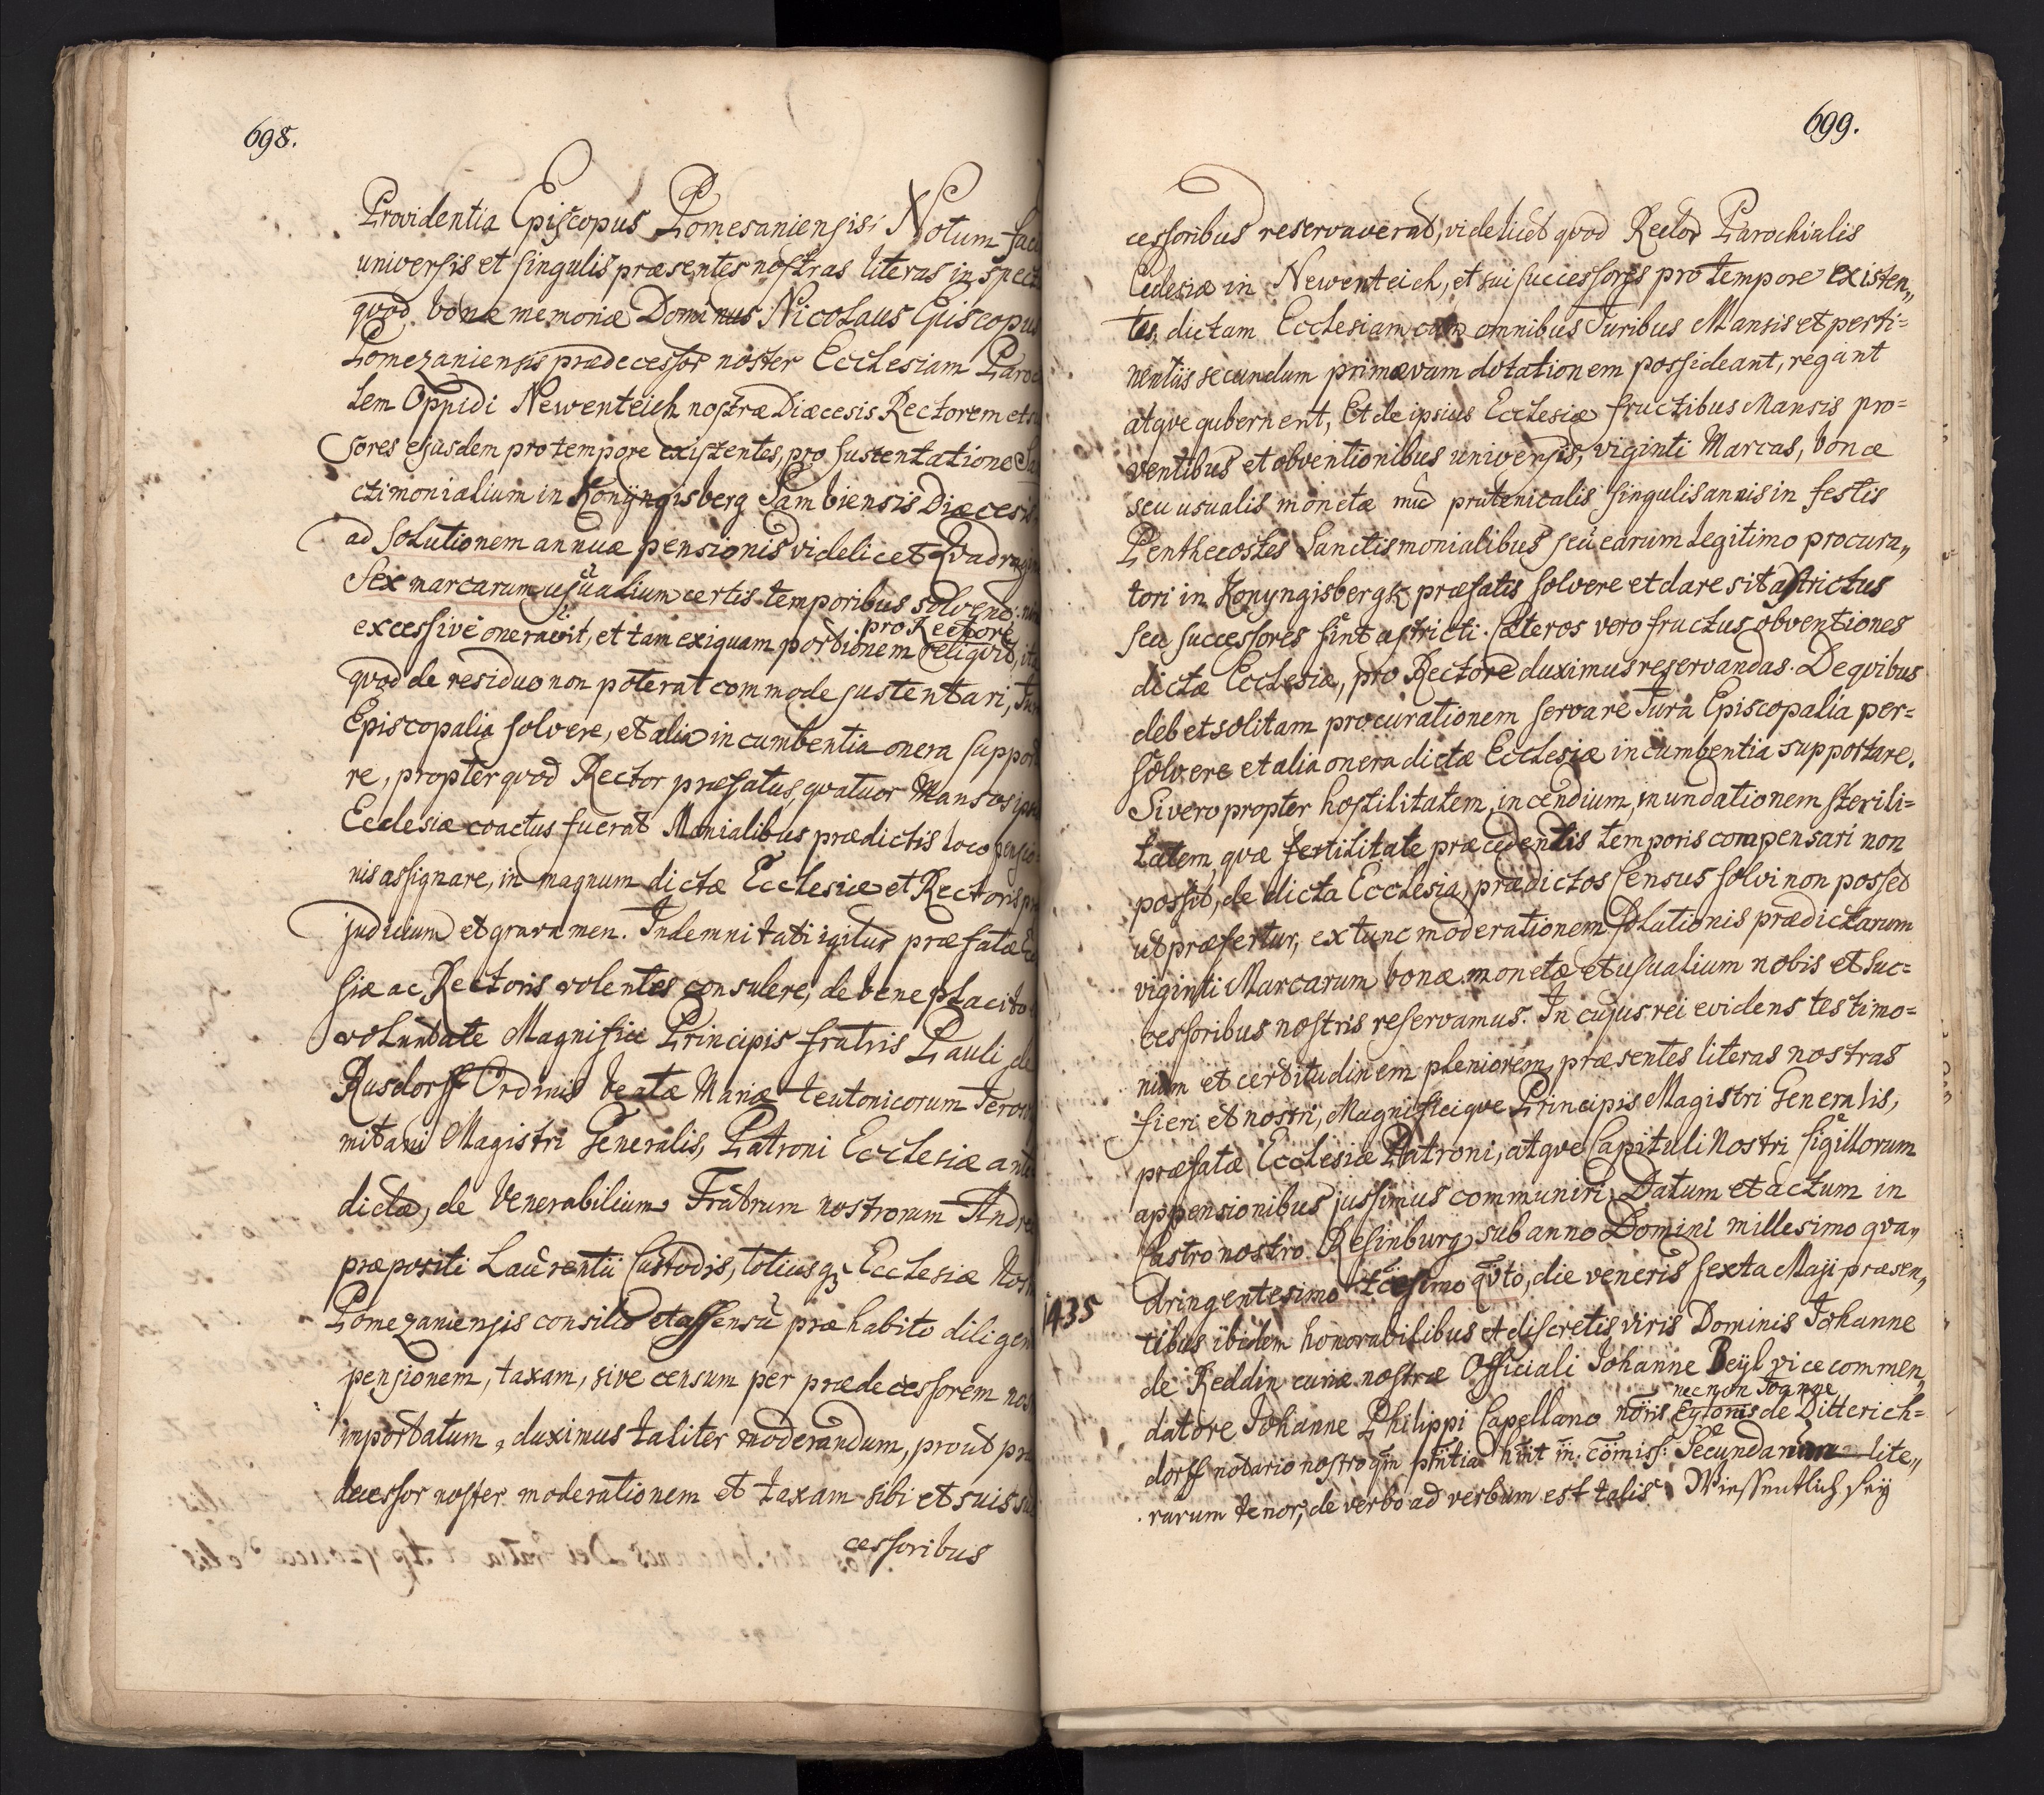 698.
Providentia Episcopus Pomesaniensis, Notum fac
universis et singulis præsentes nostras literas inspect
qvod bonæ memoriæ Dominus Nicolaus Episcopus
Pomezaniensis prædecessor noster Ecclesiam Paroc
lem Oppidi Newenteich nostræ Diæcesis Rectorem et
sores ejusdem pro tempore existentes, pro sustentatione Sa
ctimonialium in Konÿngisberg Sambiensis Diæcesis
ad solutionem annuæ pensionis videlicet Qvadragin
Sex marcarum usualium certis temporibus solvend:
excessivè oneravit, et tam exiguam portionem pro Rectore reliqvit, ita
qvod de residuo non poterat commode sustentari, Jura
Episcopalia solvere, et alia incumbentia onera support
re, propter qvod Rector præfatus, qvatuor Mansos ips
Ecclesiæ coactus fuerat Monialibus prædictis loco pensio
nis assignare, in magnum dictæ Ecclesiæ et Rectoris pr
judicium et gravamen. Indemnitati igitur præfatæ Ec
siæ ac Rectoris volentes consulere, de beneplacito
voluntate Magnifici Principis fratris Pauli de
Rusdorff Ordinis beatæ Mariæ teutonicorum Jeroso
mitani Magistri Generalis, Patroni Ecclesiæ ante
dictæ, de Venerabilium Fratrum nostrorum Andreæ
præpositi Laurentii Custodis, totiusqz Ecclesiæ Nost
Pomezaniensis consilio et assensu præhabito diligen
pensionem, taxam, sive censum per prædecessorem nos
importatum, duximus taliter moderandum, prout præ
decessor noster moderationem et taxam sibi et suis suc
cessoribus
699.
cessoribus reservaverat, videlicet qvod Rector Parochialis
Ecclesiæ in Newenteich, et sui successores pro tempore existen„
tes, dictam Ecclesiam cum omnibus Juribus Mansis et perti=
nentiis secundum primævam dotationem possideant, regant
atqve gubernent, Et de ipsius Ecclesiæ fructibus Mansis pro=
ventibus et obventionibus universis, viginti Marcas, bonæ
seu usualis monetæ prutenicalis singulis annis in festis
Penthecostes Sanctismonialibus seu earum legitimo procura„
tori in Konyngisbergk præfatis solvere et dare sit astrictus
seu successores sint astricti. Cæteros vero fructus obventiones
dictæ Ecclesiæ, pro Rectore duximus reservandas. De qvibus
debet solitam procurationem servare Jura Episcopalia per=
solvere et alia onera dictæ Ecclesiæ incumbentia supportare.
Si vero propter hostilitatem, incendium, inundationem sterili=
tatem, qvæ fertilitate præcedentis temporis compensari non
possit, de dicta Ecclesia prædictos Census solvi non posset
ut præfertur, ex tunc moderationem solutionis prædictarum
viginti Marcarum bonæ monetæ et usualium nobis et suc=
cessoribus nostris reservamus. In cujus rei evidens testimo=
nium et certitudinem pleniorem, præsentes literas nostras
fieri et nostri, Magnificiqve Principis Magistri Generalis,
præfatæ Ecclesiæ Patroni, atqve Capituli Nostri sigillorum
appensionibus jussimus communiri. Datum et actum in
Castro nostro Resinburg, sub anno Domini millesimo qva„
dringentesimo tcesimo qvto, die veneris sexta Maji præsen„
1435
tibus ibidem honorabilibus et discretis viris Dominis Johanne
de Reddin curiæ nostræ Officiali Johanne Beÿl vice commen„
datore Johanne Philippi Capellano nõris necnon Joanne Eÿlonis de Ditterich=
dorff notario nostro qm pñtia hñt in comiss: Secundarum lite„
rarum tenor, de verbo ad verbum est talis. Wissentlich seÿ